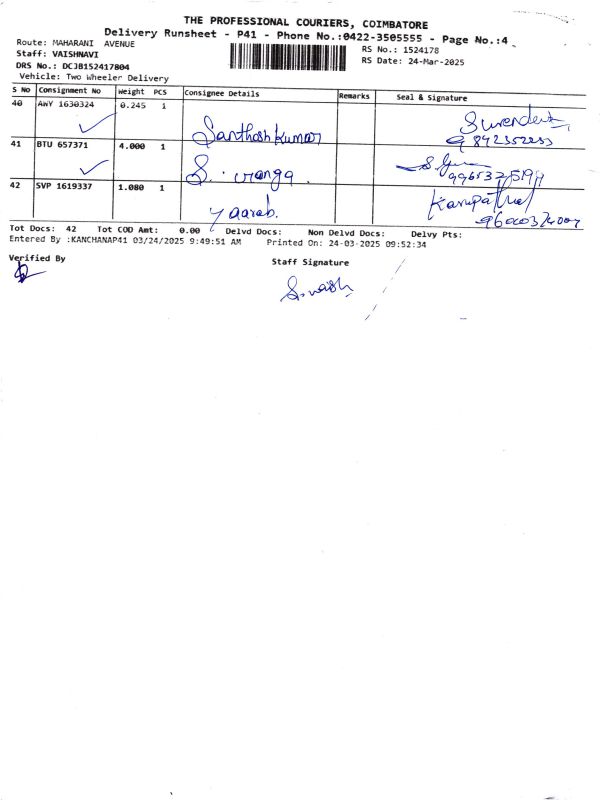 THE PROFESSIONAL COURIERS, COIMBATORE
Delivery Runsheet - P41 - Phone No.:0422-3505555 - Page No.:4
Route: MAHARANI AVENUE
RS No.: 1524178
Staff: VAISHNAVI
RS Date: 24-Mar-2025
DRS No.: DCJB152417804
Vehicle: Two Wheeler Delivery
S No Consignment No Weight PCS Consignee Details Remarks Seal & Signature
40 AWY 1630324 0.245 1
Santhosh Kumar
41 BTU 657371 4.000 1
S.
42 SVP 1619337 1.080 1
Tot Docs: 42 Tot COD Amt: 0.00 Delvd Docs: Non Delvd Docs: Delvy Pts:
Entered By :KANCHANAP41 03/24/2025 9:49:51 AM Printed On: 24-03-2025 09:52:34
Verified By
Staff Signature